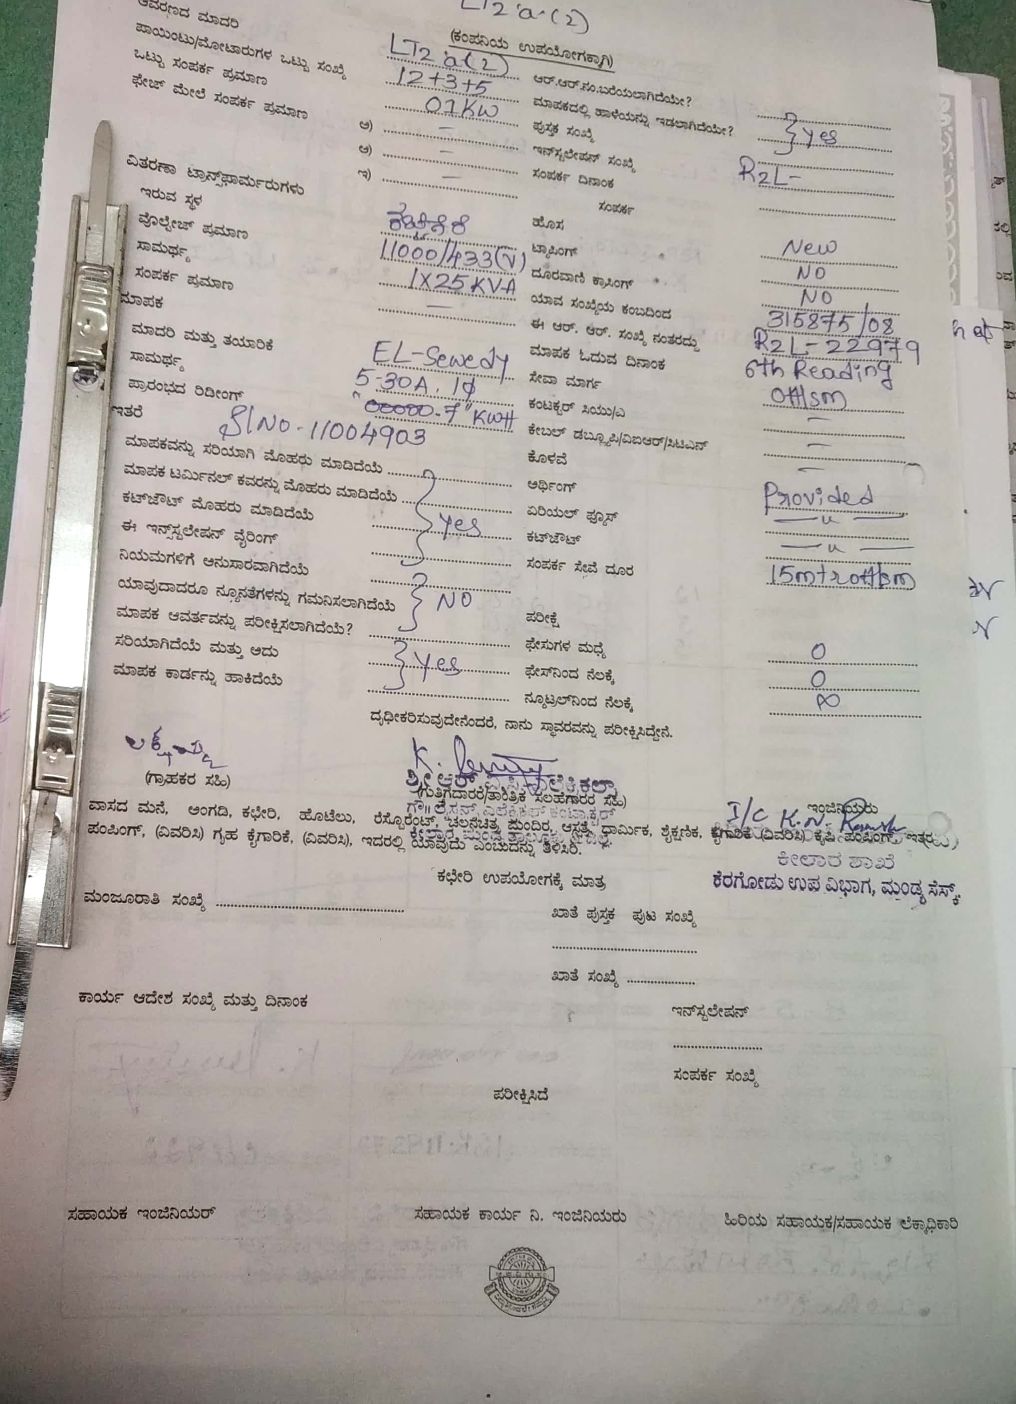 LT2 a(2)
ಆವರಣದ ಮಾದರಿ
(ಕಂಪನಿಯ ಉಪಯೋಗಕ್ಕಾಗಿ)
ಪಾಯಿಂಟು/ಮೋಟಾರುಗಳ ಒಟ್ಟು ಸಂಖ್ಯೆ LT2 a(2) ಆರ್.ಆರ್.ನಂ.ಬರೆಯಲಾಗಿದೆಯೇ?
ಒಟ್ಟು ಸಂಪರ್ಕ ಪ್ರಮಾಣ 12+3+5 ಮಾಪಕದಲ್ಲಿ ಹಾಳೆಯನ್ನು ಇಡಲಾಗಿದೆಯೇ? } Yes
ಫೇಜ್ ಮೇಲೆ ಸಂಪರ್ಕ ಪ್ರಮಾಣ 01KW ಪುಸ್ತಕ ಸಂಖ್ಯೆ
ಅ) — ಇನ್‌ಸ್ಟಲೇಷನ್ ಸಂಖ್ಯೆ R2L-
ಆ) — ಸಂಪರ್ಕ ದಿನಾಂಕ
ಇ) — ಸಂಪರ್ಕ
ವಿತರಣಾ ಟ್ರಾನ್ಸ್‌ಫಾರ್ಮರುಗಳು
ಇರುವ ಸ್ಥಳ ಹೊಸ New
ವೊಲ್ಟೇಜ್ ಪ್ರಮಾಣ 11000/433(V) ಟ್ಯಾಪಿಂಗ್ NO
ಸಾಮರ್ಥ್ಯ 1X25KVA ದೂರವಾಣಿ ಕ್ರಾಸಿಂಗ್ NO
ಸಂಪರ್ಕ ಪ್ರಮಾಣ — ಯಾವ ಸಂಖ್ಯೆಯ ಕಂಬದಿಂದ 315875/08
ಮಾಪಕ ಈ ಆರ್. ಆರ್. ಸಂಖ್ಯೆ ನಂತರದ್ದು R2L-22979
ಮಾದರಿ ಮತ್ತು ತಯಾರಿಕೆ EL-Sewedy ಮಾಪಕ ಓದುವ ದಿನಾಂಕ 6th Reading
ಸಾಮರ್ಥ್ಯ 5-30A, 1φ ಸೇವಾ ಮಾರ್ಗ OH/sm
ಪ್ರಾರಂಭದ ರಿಡೀಂಗ್ 00000-7 KWH ಕಂಟಕ್ಟರ್ ಸಿಯು/ಎ —
ಇತರೆ Sl No-11004903 ಕೇಬಲ್ ಡಬ್ಲ್ಯೂಪಿ/ವಿಐಆರ್/ಸಿಟಿಎನ್ —
ಮಾಪಕವನ್ನು ಸರಿಯಾಗಿ ಮೊಹರು ಮಾಡಿದೆಯೆ ಕೊಳವೆ —
ಮಾಪಕ ಟರ್ಮಿನಲ್ ಕವರನ್ನು ಮೊಹರು ಮಾಡಿದೆಯೆ ಅರ್ಥಿಂಗ್ Provided
ಕಟ್‌ಔಟ್ ಮೊಹರು ಮಾಡಿದೆಯೆ } Yes ಏರಿಯಲ್ ಫ್ಯೂಸ್ — u —
ಈ ಇನ್‌ಸ್ಟಲೇಷನ್ ವೈರಿಂಗ್ ಕಟ್‌ಔಟ್ — u —
ನಿಯಮಗಳಿಗೆ ಅನುಸಾರವಾಗಿದೆಯೆ ಸಂಪರ್ಕ ಸೇವೆ ದೂರ
ಯಾವುದಾದರೂ ನ್ಯೂನತೆಗಳನ್ನು ಗಮನಿಸಲಾಗಿದೆಯೆ } NO ಪರೀಕ್ಷೆ
ಮಾಪಕ ಆವರ್ತವನ್ನು ಪರೀಕ್ಷಿಸಲಾಗಿದೆಯೆ? ಫೇಸುಗಳ ಮಧ್ಯೆ 0
ಸರಿಯಾಗಿದೆಯೆ ಮತ್ತು ಅದು } Yes ಫೇಸ್‌ನಿಂದ ನೆಲಕ್ಕೆ 0
ಮಾಪಕ ಕಾರ್ಡನ್ನು ಹಾಕಿದೆಯೆ ನ್ಯೂಟ್ರಲ್‌ನಿಂದ ನೆಲಕ್ಕೆ ∞
ದೃಢೀಕರಿಸುವುದೇನೆಂದರೆ, ನಾನು ಸ್ಥಾವರವನ್ನು ಪರೀಕ್ಷಿಸಿದ್ದೇನೆ.
(ಗ್ರಾಹಕರ ಸಹಿ) (ಗುತ್ತಿಗೆದಾರರ/ತಾಂತ್ರಿಕ ಸಲಹೆಗಾರರ ಸಹಿ) I/C ಇಂಜಿನಿಯರು
ವಾಸದ ಮನೆ, ಅಂಗಡಿ, ಕಛೇರಿ, ಹೊಟೆಲು, ರೆಸ್ಟೋರೆಂಟ್, ಚಲನಚಿತ್ರ ಮಂದಿರ, ಆಸ್ಪತ್ರೆ, ಧಾರ್ಮಿಕ, ಶೈಕ್ಷಣಿಕ, ಕೈಗಾರಿಕೆ (ವಿವರಿಸಿ) ಕೃಷಿ ಪಂಪಿಂಗ್, ಇತರ
ಪಂಪಿಂಗ್, (ವಿವರಿಸಿ) ಗೃಹ ಕೈಗಾರಿಕೆ, (ವಿವರಿಸಿ), ಇದರಲ್ಲಿ ಯಾವುದು ಎಂಬುದನ್ನು ತಿಳಿಸಿರಿ.
ಕೀಲಾರ ಶಾಖೆ
ಕಛೇರಿ ಉಪಯೋಗಕ್ಕೆ ಮಾತ್ರ ಕೆರಗೋಡು ಉಪ ವಿಭಾಗ, ಮಂಡ್ಯ ಸೆಸ್ಕ್.
ಮಂಜೂರಾತಿ ಸಂಖ್ಯೆ
ಖಾತೆ ಪುಸ್ತಕ ಪುಟ ಸಂಖ್ಯೆ
ಖಾತೆ ಸಂಖ್ಯೆ
ಕಾರ್ಯ ಆದೇಶ ಸಂಖ್ಯೆ ಮತ್ತು ದಿನಾಂಕ
ಇನ್‌ಸ್ಟಲೇಷನ್
ಸಂಪರ್ಕ ಸಂಖ್ಯೆ
ಪರೀಕ್ಷಿಸಿದೆ
ಸಹಾಯಕ ಇಂಜಿನಿಯರ್ ಸಹಾಯಕ ಕಾರ್ಯ ನಿ. ಇಂಜಿನಿಯರು ಹಿರಿಯ ಸಹಾಯಕ/ಸಹಾಯಕ ಲೆಕ್ಕಾಧಿಕಾರಿ